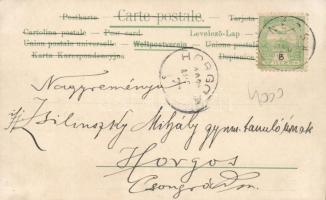 Postkarte Carte postale. Tarjeta
Cartolina postale Post card Levelező-Lap
Union postale universelle Weltpostverein
Karta Korrespondencyjna
6
HORGOS
Nagyreményű
ifj. Zsilinszky Mihály gymn. tanulónak
Horgos
Csongrád m.